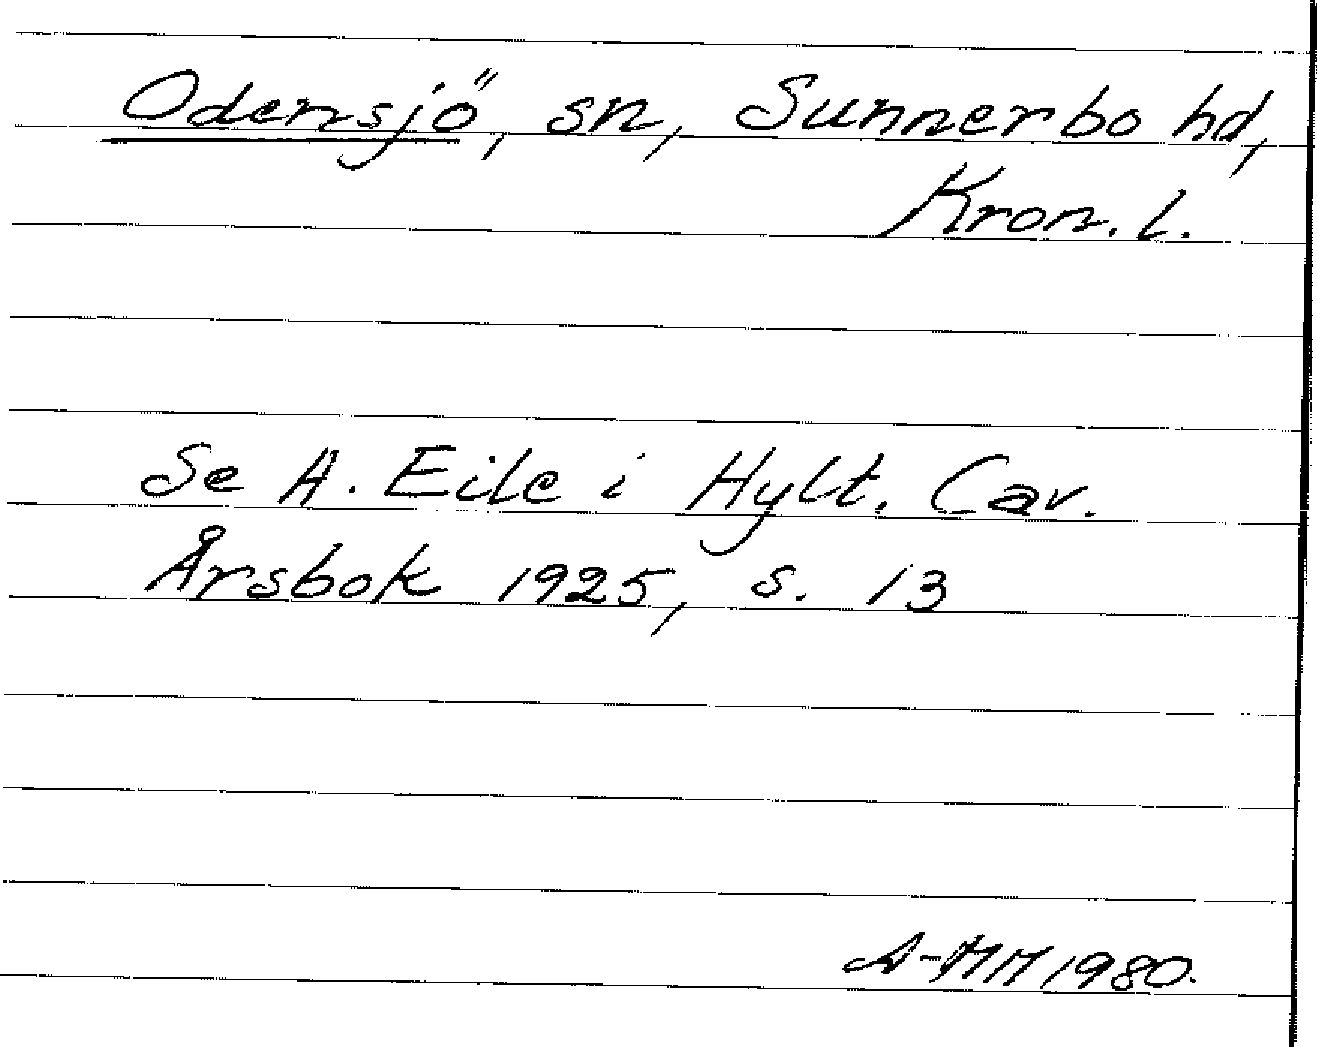 Odensjö, sn, Sunnerbo hd,
Kron. l.
Se A. Eile i Hylt. Cav.
Årsbok 1925, s. 13
A-MH 1980.